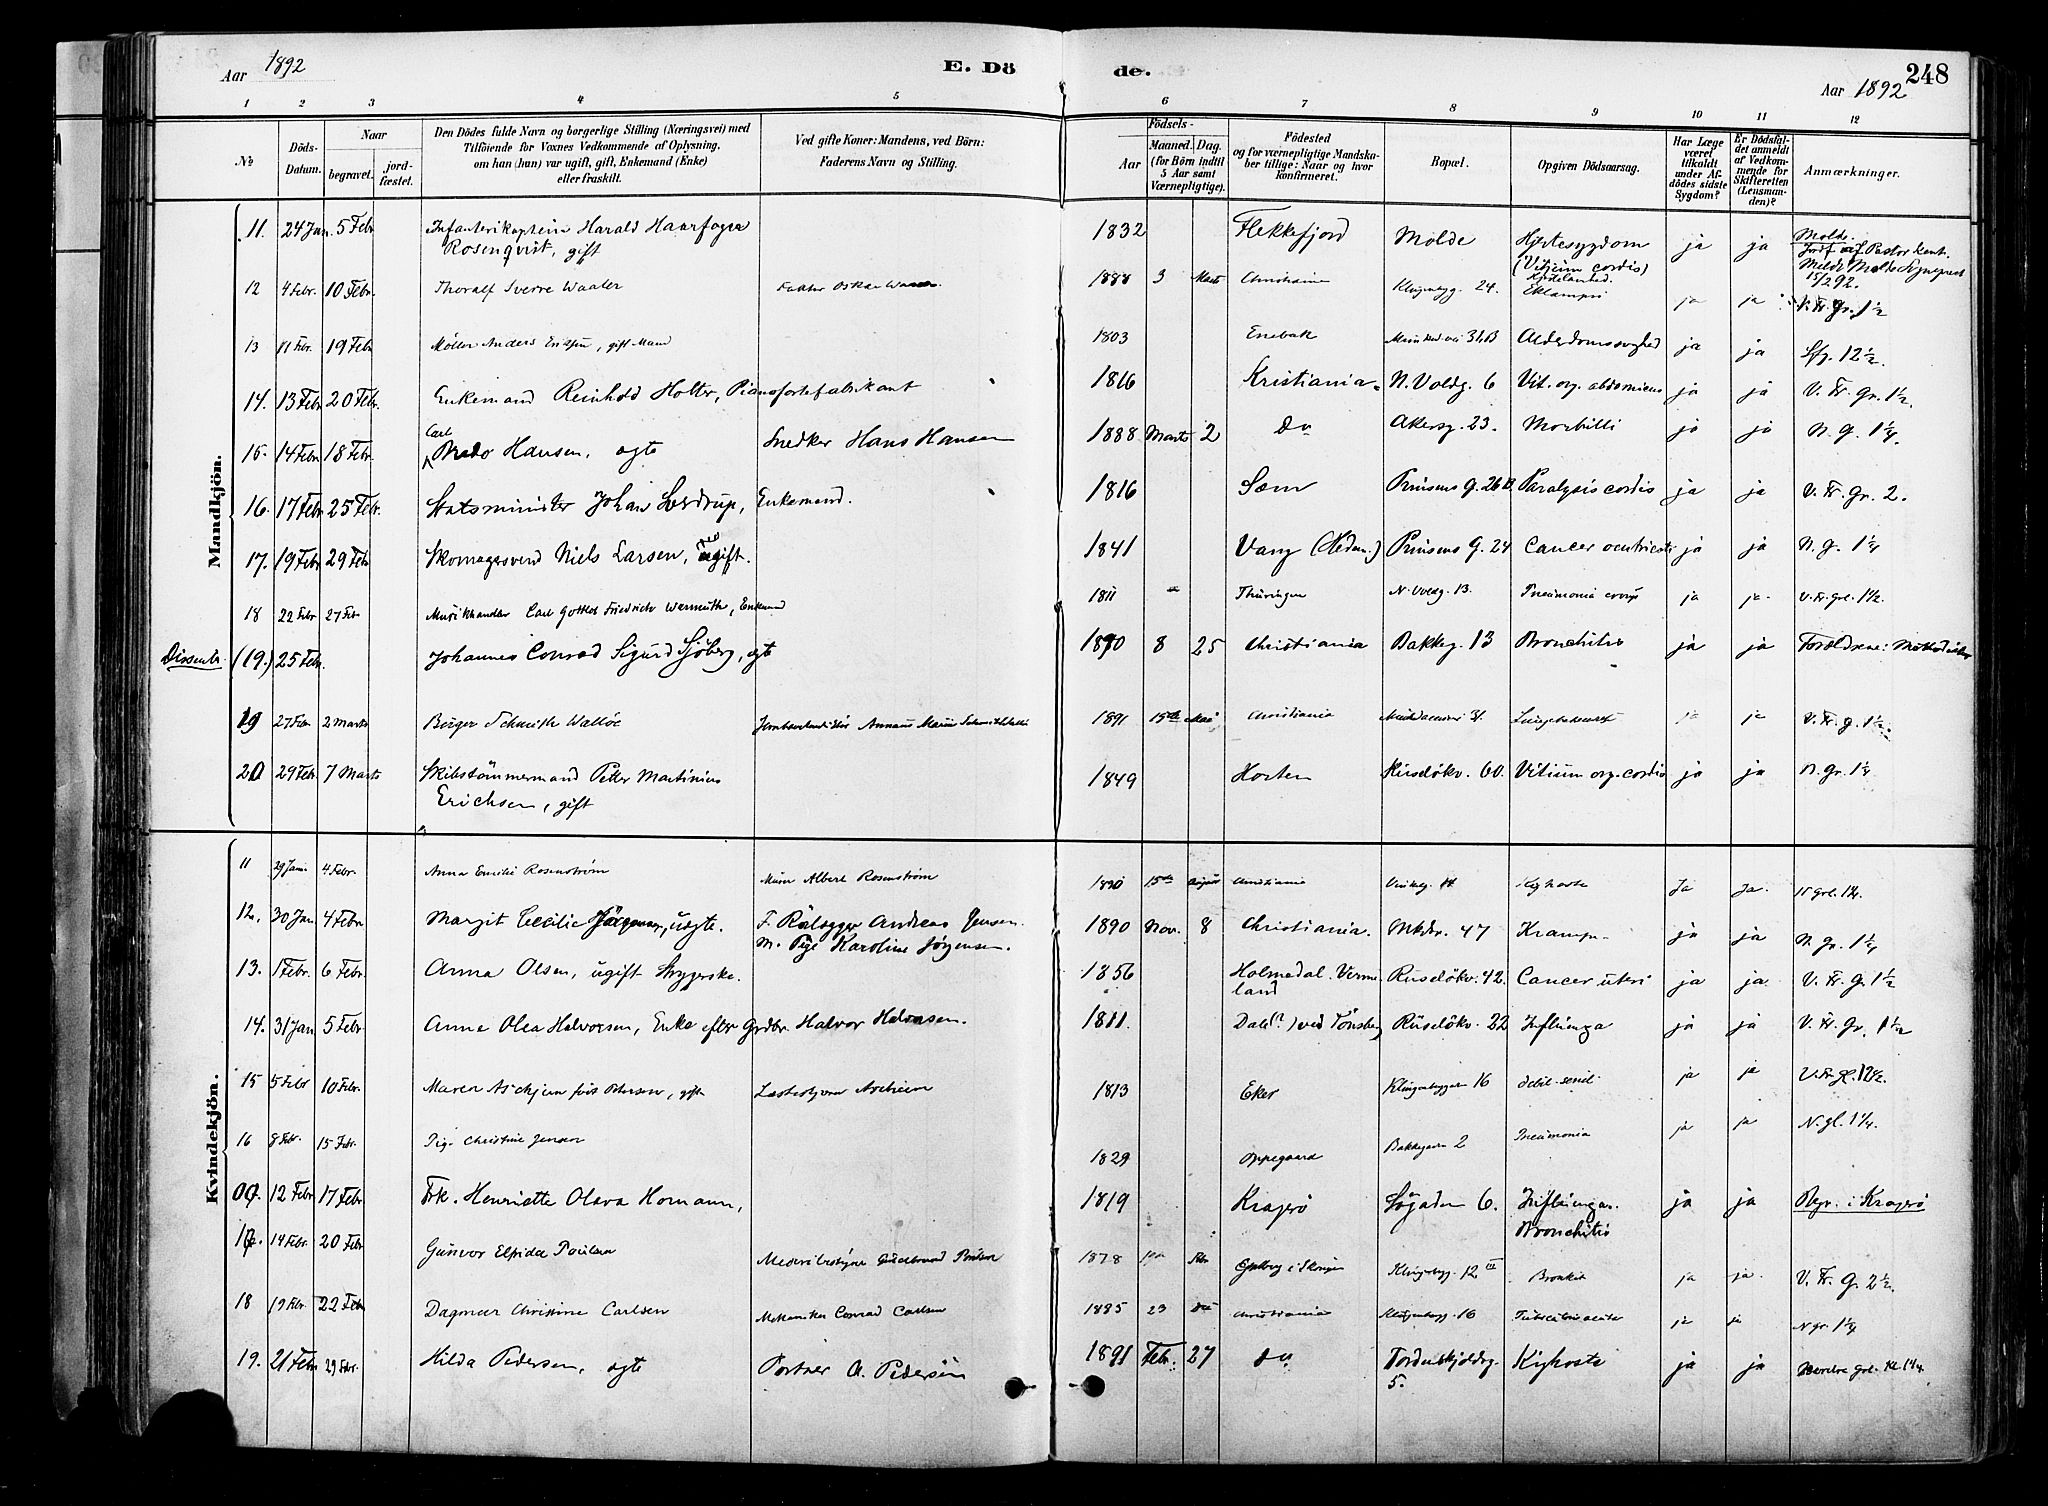 Aar 1892
E. Dö
de.
248
Aar 1892
1 2 3 4 5 6 7 8 9 10 11 12
No
Döds-Datum.
Naar
begravet.
jordfæstet.
Den Dödes fulde Navn og borgerlige Stilling (Næringsvei) med
Tilföiende for Voxnes Vedkommende af Oplysning,
om han (hun) var ugift, gift, Enkemand (Enke)
eller fraskilt.
Ved gifte Koner: Mandens, ved Börn:
Faderens Navn og Stilling.
Födsels-
Aar
Maaned. Dag.
(for Börn indtil
5 Aar samt
Værnepligtige).
Födested
og for værnepligtige Mandskaber tillige: Naar og hvor
konfirmeret.
Bopæl.
Opgiven Dödsaarsag.
Har Læge
været
tilkaldt
under Afdödes sidste
Sygdom?
Er Dödsfaldet anmeldt
af Vedkommende for
Skifteretten
(Lensmanden)?
Anmærkninger.
Mandkjön.
11. 24 Jan. 5 Febr Infanterikaptein Harald Haarfagre
Rosenqvist, gift 1832 Flekkefjord Molde Hjertesygdom
(Vitium cordis) ja ja Molde.
12 4 Febr. 10 Febr. Thoralf Sverre Waaler Faktor Oskar 1888 3 Marts Christiania Klingenbg. 24. Eklampsi ja ja V. Fr. Gr. 1 1/2
13 11 Febr. 19 Febr Møller Anders, gift Mand 1803 Enebak 31B Alderdomssvaghed ja ja 12 1/2.
14. 13 Febr 20 Febr. Enkemand Reinhold Holter, Pianofortefabrikant 1816 Kristiania. N. Voldg. 6 Vit. org. abdominis ja ja V. Fr. Gr. 1 1/2.
15. 14 Febr 18 Febr. Carl Hansen, ægte Snedker Hans Hansen 1888 Marts 2 Do Akersg. 23. Morbilli ja ja N. G. 1 1/4.
16. 17 Febr 25 Febr. Statsminister Johan Sverdrup, Enkemand. 1816 Sæm Prinsens G. 26B Paralysis cordis ja ja V. Fr. Gr. 2.
17. 19 Febr 29 Febr Skomagersvend Niels Larsen, ugift. 1841 Vang (Hedem.) Prinsens G. 24 Cancer ventriculi ja ja N. G. 1 1/4
18 22 Febr 27 Febr Musikhandler Carl Gottlob Friedrich Warmuth, Enkemand 1811 Thüringen N. Voldg. 13. Pneumonia ja ja. V. Fr. Gr. 1 1/2.
Dissenter. (19.) 25 Febr. Johannes Conrad Sigurd Sjöberg, ægte 1890 8 25 Christiania Bakkeg. 13 Bronchitis ja ja Forældrene: Methodister
19 27 Febr 2 Marts Birger Schmith Walløe 1891 15de Mai Christiania ja ja V. Fr. G. 1 1/2.
20 29 Febr. 7 Marts Skibstömmermand Petter Martinius
Erichsen, gift 1849 Horten Ruselökv. 60. Vitium org. cordis ja ja N. Gr. 1 1/4
Kvindekjön.
11 29 Jan. 4 Febr. Anna Emilie Rosenstrøm Murer Albert Rosenstrøm 1890 15de August Christiania Kighoste Ja Ja. N Grl. 1 1/4.
12. 30 Jan 4 Febr. Margit Cecilie Jörgensen, uægte. F. Rörlægger Andreas Jensen.
M. Pige Karoline Jörgensen. 1890 Nov. 8 Christiania. Mkdv. 47 Krampe ja ja N. Gr. 1 1/4
13. 1 Febr. 6 Febr. Anna Olsen, ugift Strygerske. 1856 Holmedal. Vermeland Ruselökv. 42. Cancer uteri ja ja. V. Fr. G. 1 1/2
14. 31 Jan 5 Febr. Anna Olea Halvorsen, Enke efter Grdbr. Halvor Halvorsen. 1811. Dal(?) ved Tönsberg Ruselökv. 22 Influenza ja ja V. Fr. Gr. 1 1/2
15 5 Febr 10 Febr. Maren Aschjem født Petersen, gift 1813 Eker Klingenbggd 16 debil. senil. ja ja V. Fr. Gl. 1 1/2.
16 8 Febr. 15 Febr. Pige Christine Jensen 1829 Oppegaard Bakkegaden 2 Pneumonia ja ja N. Gl. 1 1/4.
12 Febr 17 Febr. Frk. Henriette Olava Homann, 1819 Kragerö Søgaden 6. Influenza.
Bronchitis ja ja Begr. i Kragerö
17. 14 Febr. 20 Febr Gunvor Elfrida Paulsen 1878 Klingenbg. 12 III ja ja. V. Fr. G. 2 1/2.
18 19 Febr. 22 Febr Dagmar Christine Carlsen Mekaniker Conrad Carlsen 1885 23 Christiania Klingenbgg. 16 ja ja N Gr. 1 1/4
19. 21 Febr 29 Febr. Hilda Pedersen, ægte Portner A. Pedersen 1891 Febr. 27 do Tordenskjoldsg. 5. Kighoste ja ja Nordre Grl. Kl. 1 1/4